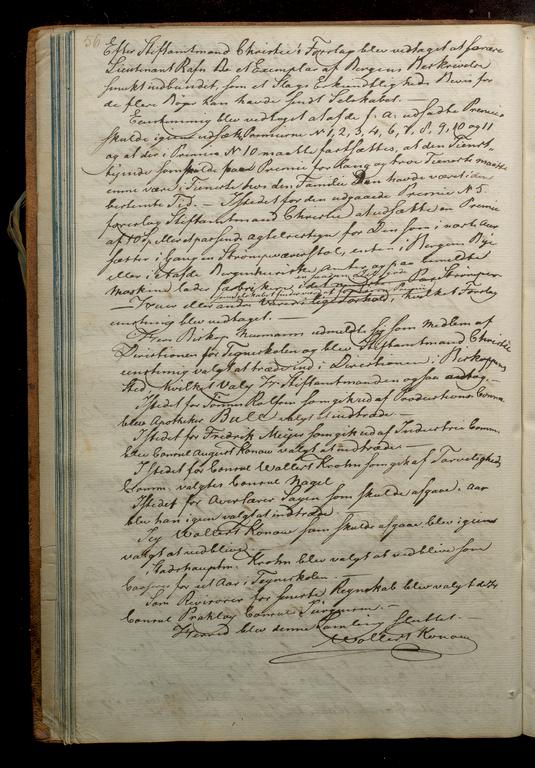 56
Efter Stiftamtmand Christie's Forslag blev vedtaget at forære
Lieutenant Rafn De et Exemplar af Bergens Beskrivelse
smukt indbundet, som et Slags Erkiendtligheds Beviis for
de flere Bøger han havde sendt Selskabet. —
Eenstemmig blev vedtaget at de f: A: udsadte Premier
skulde igien udsættes Premierne N 1, 2, 3, 4, 6, 7, 8, 9, 10 og 11
og at der i Premien N 10 maatte fastsættes, at den Tieneste
tjende som fik paa Premie for lang og troe Tieneste maatte
endnu være i Tieneste hos den Familie Den havde været i den
bestemte Tid. — Istedet for den udgaaede Premie N 5.
foreslog Stiftamtmand Christie at udsætte en Premie
af 70 Sp. eller et passende agtelsestegn for Den som i næste Aar
sætter i Gang en Strømpevæverstol, enten i Bergens Bye
eller i et af de Bergenhuusske Amter og paa bemeldte
Maskine lader fabrikere i det mindste Par Strømper
— Truier eller andre Varer i lige Forhold, hvilket Forslag
eenstemmig blev vedtaget. —
Herr Biskop Neumann udmeldte sig som Medlem af
Directionen for Tegneskolen og blev Stiftamtmand Christie
eenstemmig valgt at træde ind i Directionen i Biskoppens
Sted, hvilket Valg Hr. Stiftamtmanden ogsaa modtog. —
Istedet for Tønnes Rolfsen som gik ud af Productions Comm:
blev Apotheker Bull valgt at indtræde. —
Istedet for Fredrik Meijer som gik ud af Industrie Comm:
blev Consul August Konow valgt at indtræde. —
Istedet for Consul Wollert Krohn som gik af Tarveligheds
Comm. valgtes Consul Nagel
Istedet for Overlærer Sagen som skulde afgaae i Aar
blev han igien valgt at indtræde. —
Jeg Wollert Konow som skulde afgaae blev igien
valgt at vedblive
Stadshauptm. Krohn blev valgt at vedblive som
Casserer for et Aar i Tegneskolen. —
Som Revisorer for seneste Regnskab blev valgt d'Hr
Consul Prahl og Consul Jürgensen. —
Hermed blev denne Samling sluttet. —
Wollert Konow